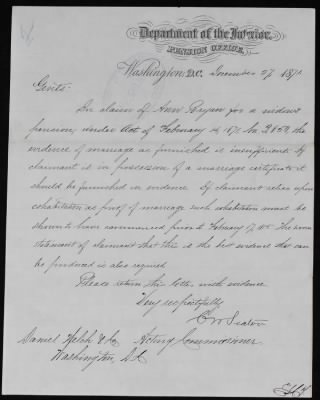 Department of the Interior,
PENSION OFFICE,
Washington, D.C. December 27 1871
Gents:
In claim of Ann Bryan for a widows
pension, under Act of February 14, 1871 No 2850, the
evidence of marriage as furnished is insufficient. If
claimant is in possession of a marriage certificate it
should be furnished in evidence. If claimant relies upon
cohabitation as proof of marriage such cohabitation must be
shown to have commenced prior to February 17, 1815. The sworn
statement of claimant that this is the best evidence she can
be produced is also required
Please return this letter with evidence.
Very respectfully,
Acting Commissioner
Daniel &
Washington, D.C.